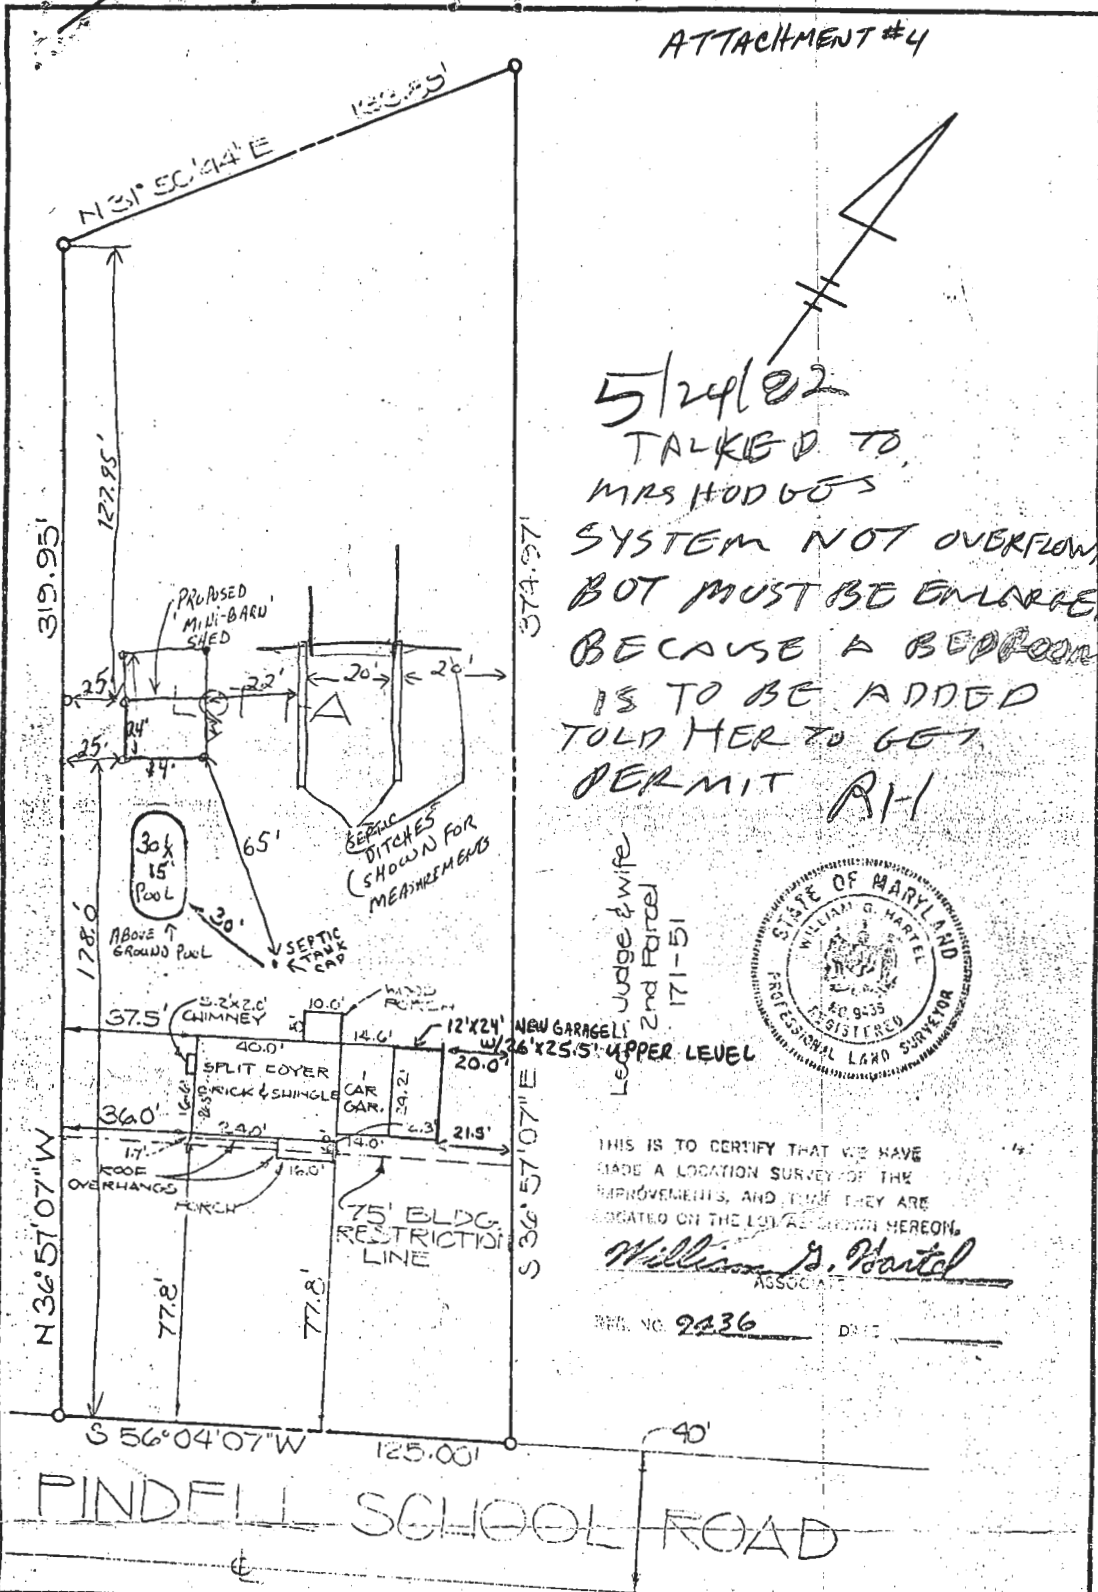 ATTACHMENT #4
N 31° 50' 44" E
5/24/82
TALKED TO
MRS HODGES
SYSTEM NOT OVERFLOW
BUT MUST BE ENLARGE
BECAUSE A BEDROOM
IS TO BE ADDED
TOLD HER TO GET
PERMIT RH
127.95'
319.95'
374.97'
PROPOSED
MINI-BARN
SHED
25'
22'
20'
20'
A
24'
25'
14'
SEPTIC
DITCHES
(SHOWN FOR
MEASUREMENTS
65'
30 X
15'
POOL
30'
ABOVE
GROUND POOL
SEPTIC
TANK
CAP
178.0'
Judge & Wife
2nd Parcel
171-51
STATE OF MARYLAND
WILLIAM G. HARTEL
REGISTERED
PROFESSIONAL LAND SURVEYOR
CHIMNEY
10.0'
WOOD
PORCH
37.5'
40.0'
14.6'
12'X24' NEW GARAGE
W/26'X25.5' UPPER LEVEL
20.0'
SPLIT FOYER
BRICK & SHINGLE
1
CAR
GAR.
24.2'
36.0'
24.0'
14.0'
2.3'
21.5'
1.7'
ROOF
OVERHANGS
PORCH
16.0'
75' BLDG.
RESTRICTION
LINE
77.8'
77.8'
N 36° 57' 07" W
S 36° 57' 07" E
THIS IS TO CERTIFY THAT WE HAVE
MADE A LOCATION SURVEY OF THE
IMPROVEMENTS, AND THAT THEY ARE
LOCATED ON THE LOT AS SHOWN HEREON.
William G. Hartel
ASSOCIATE
REG. NO. 9436 DATE
S 56° 04' 07" W
125.00'
40'
PINDELL SCHOOL ROAD